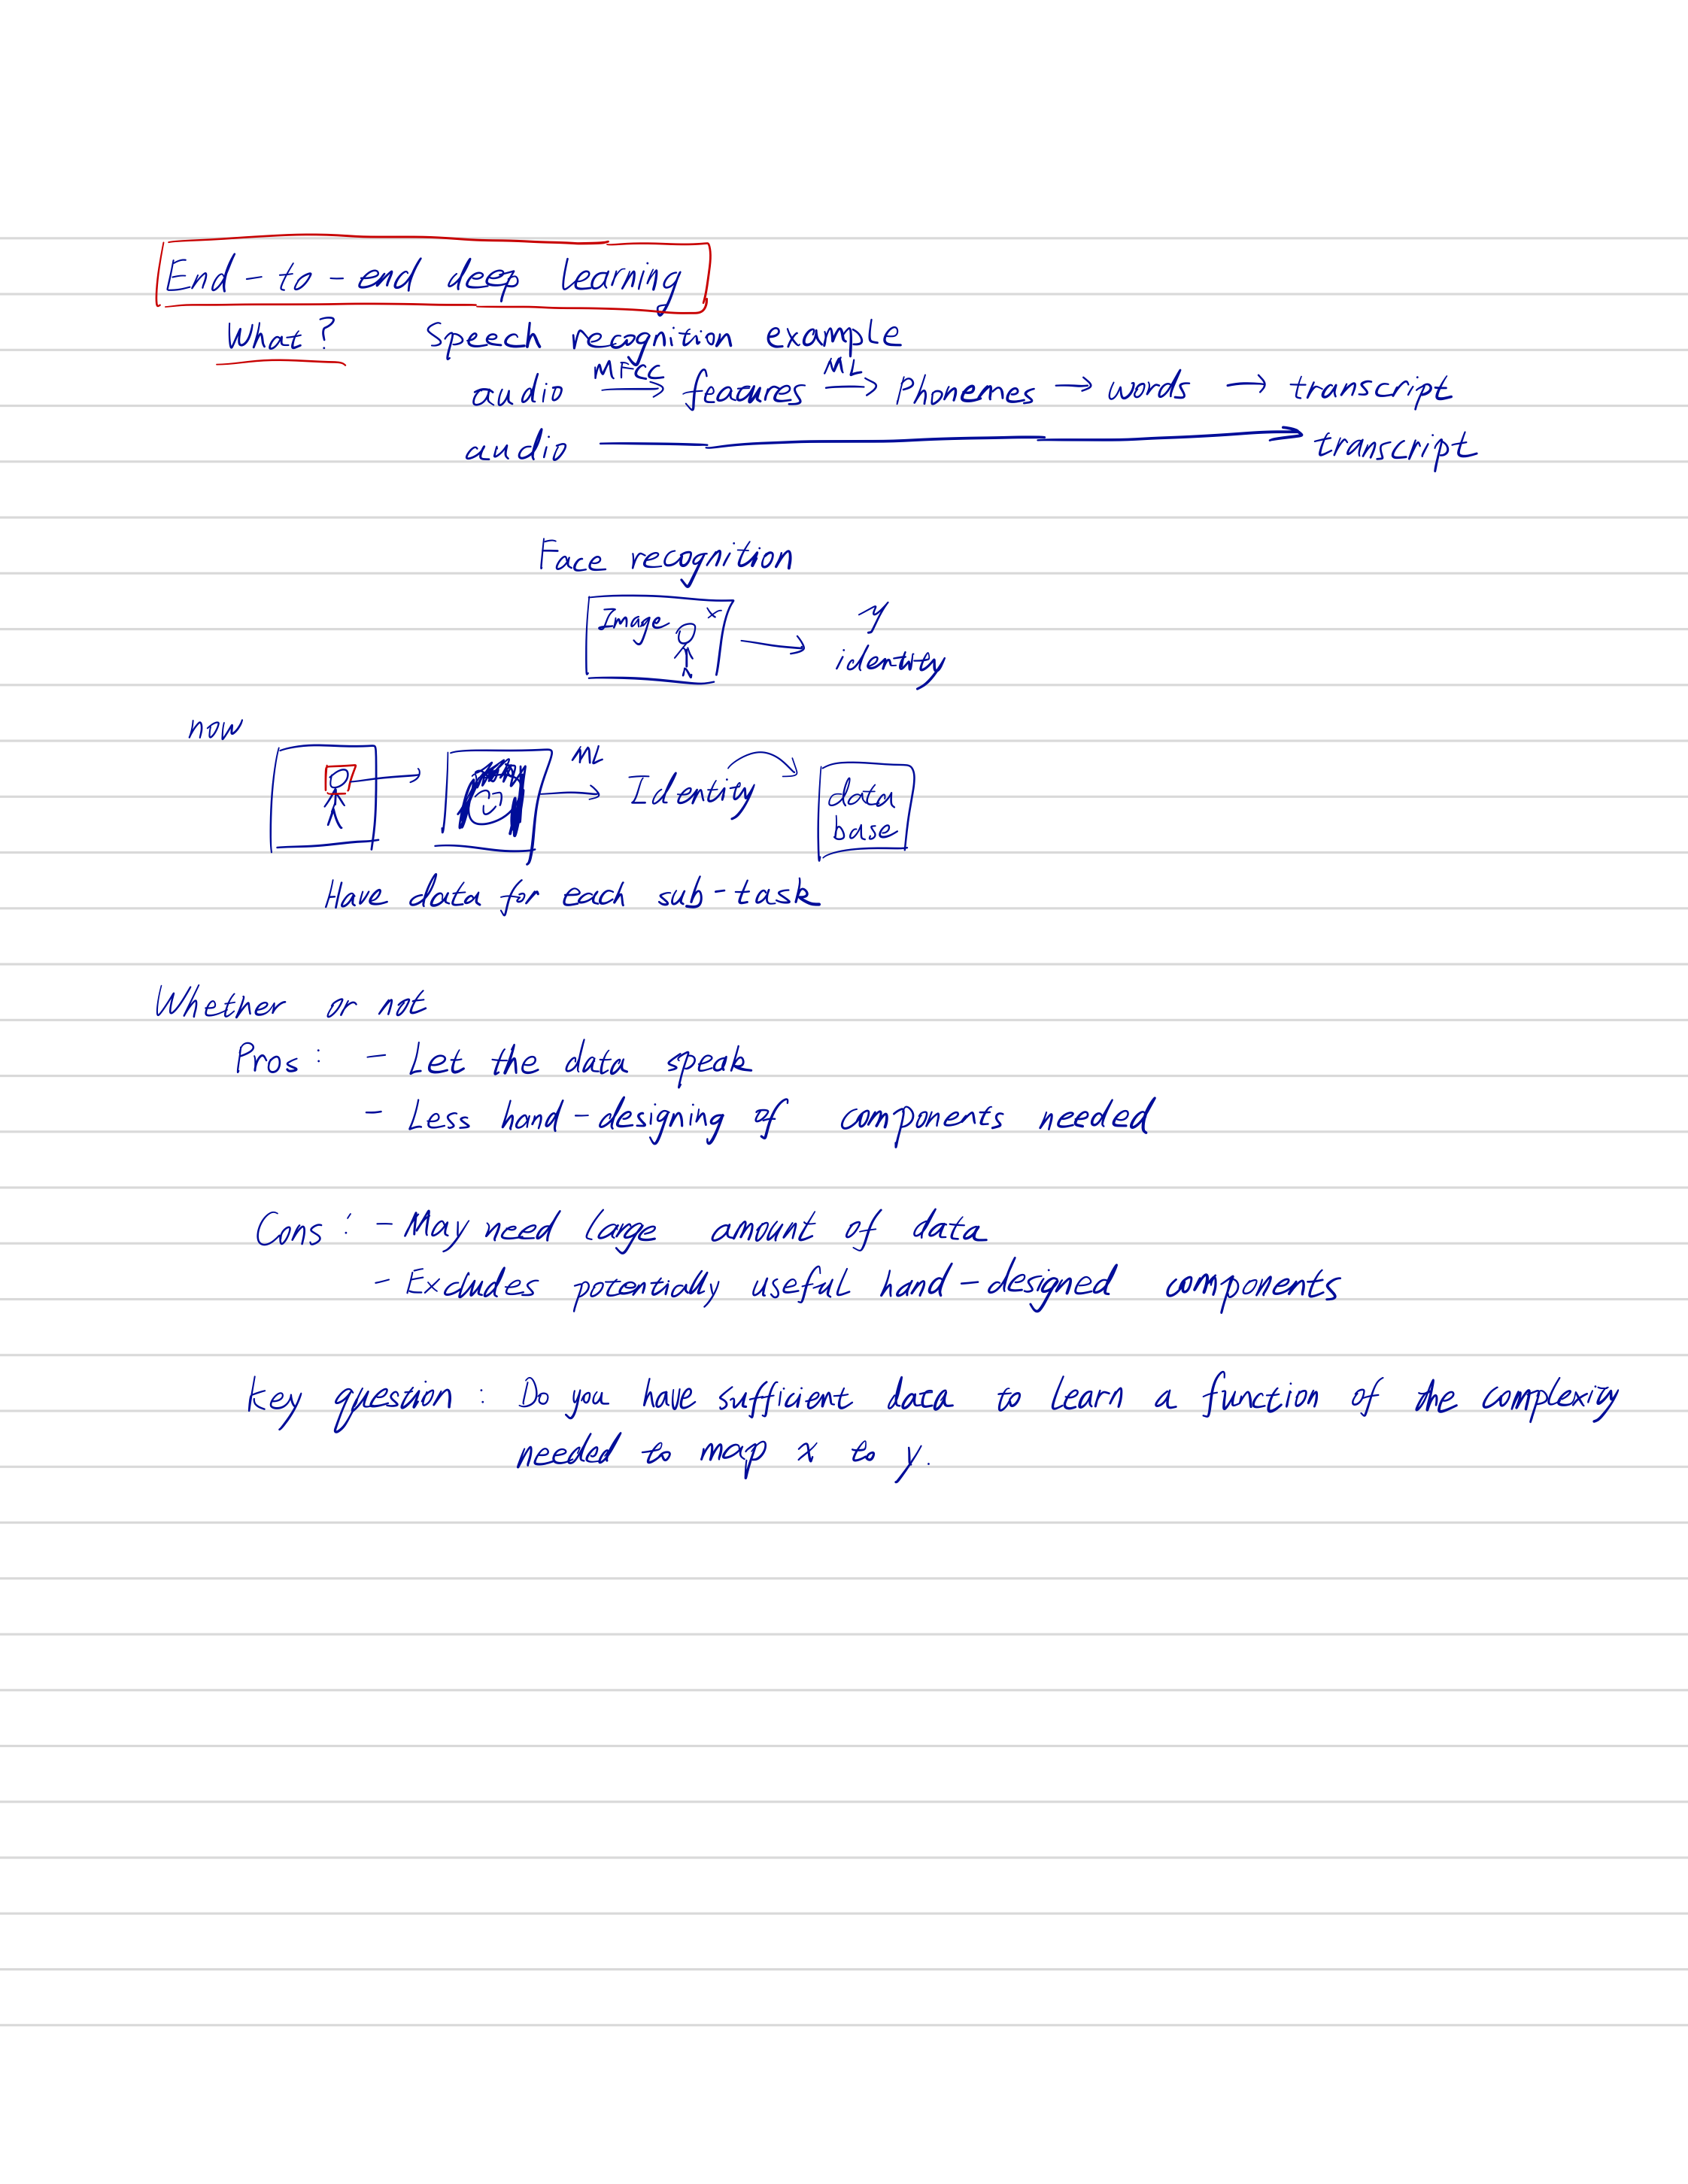 End-to-end deep learning
What? Speech recognition example
audio MFCC → features ML → Phonemes → words → transcript
audio → transcript
Face recognition
Image x → y
identity
now
ML → Identity data
base
Have data for each sub-task
Whether or not
Pros: - Let the data speak
- Less hand-designing of components needed
Cons: - May need large amount of data
- Excludes potentially useful hand-designed components
Key question: Do you have sufficient data to learn a function of the complexity
needed to map x to y.